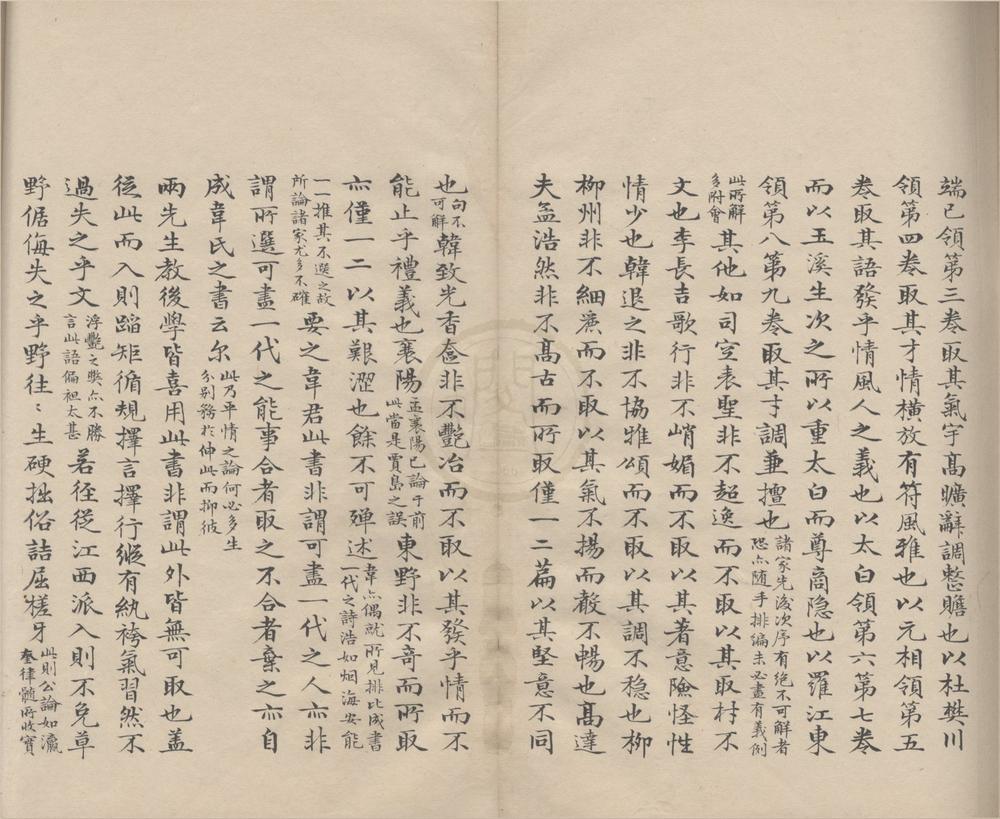 端已領第三卷取其氣宇髙曠辭調整贍也以杜樊川
領第四卷取其才情橫放有符風雅也以元相領第五
卷取其語發乎情風人之義也以太白領第六第七卷
而以玉溪生次之所以重太白而尊商隐也以羅江東
領第八第九卷取其才調兼擅也諸家先後次序有絶不可解者恐亦随手排編未必盡有義例
此所解多附會其他如司空表聖非不超逸而不取以其取材不
文也李長吉歌行非不峭媚而不取以其著意險怪性
情少也韓退之非不協雅頌而不取以其調不稳也柳
柳州非不細亷而不取以其氣不揚而散不暢也髙達
夫孟浩然非不髙古而所取僅一二篇以其堅意不同
也句不可解韓致光香奩非不艷冶而不取以其發乎情而不
能止乎禮義也襄陽孟襄陽已論于前此當是賈島之誤東野非不竒而所取
亦僅一二以其艱澀也餘不可殫述韋亦偶就所見排比成書一代之詩浩如烟海安能
一一推其不選之故所論諸家尤多不確要之韋君此書非謂可盡一代之人亦非
謂所選可盡一代之能事合者取之不合者棄之亦自
成韋氏之書云尔此乃平情之論何必多生分别務於伸此而抑彼
兩先生教後學皆喜用此書非謂此外皆無可取也盖
從此而入則蹈矩循規擇言擇行縱有紈袴氣習然不
過失之乎文浮艷之獘亦不勝言此語偏袒太甚若徑從江西派入則不免草
野倨侮失之乎野往〻生硬拙俗詰屈槎牙此則公論如瀛奎律髓所收實